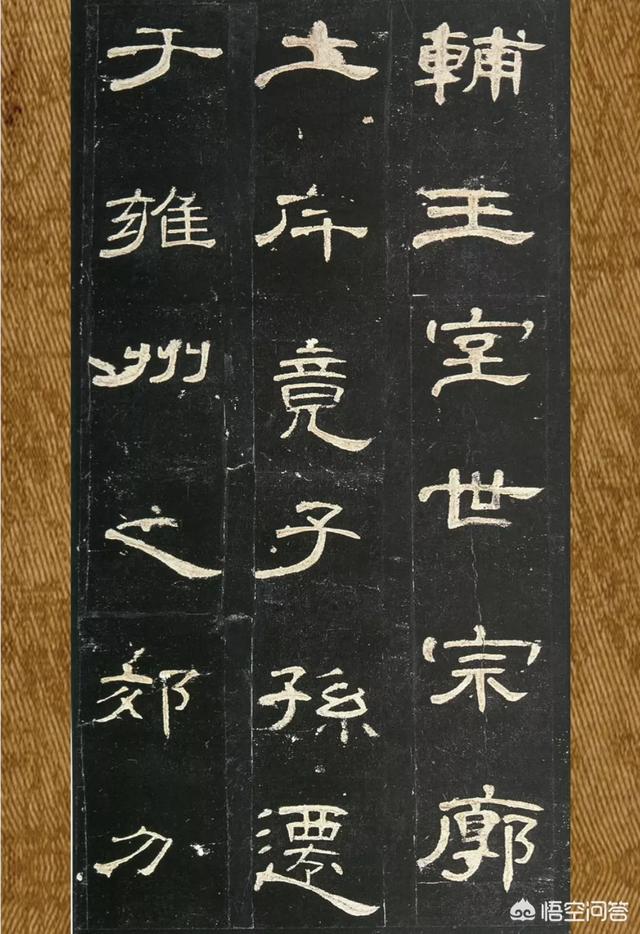 輔王室世宗廓
土斥竟子孫遷
于雍州之郊分
悟空问答